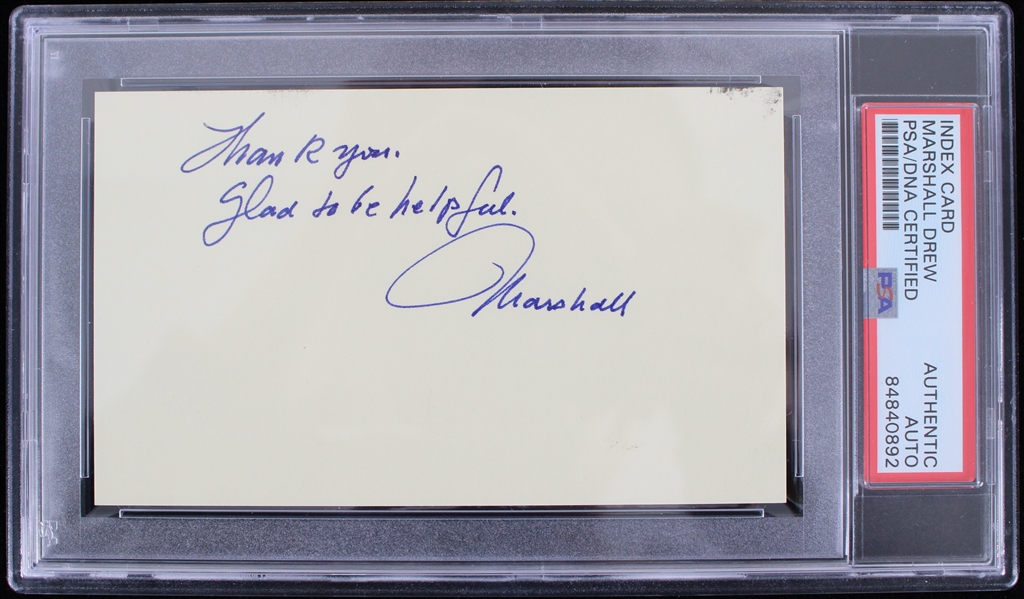 Thank you.
Glad to be helpful.
Marshall
INDEX CARD
MARSHALL DREW
PSA/DNA CERTIFIED
PSA
AUTHENTIC
AUTO
84840892